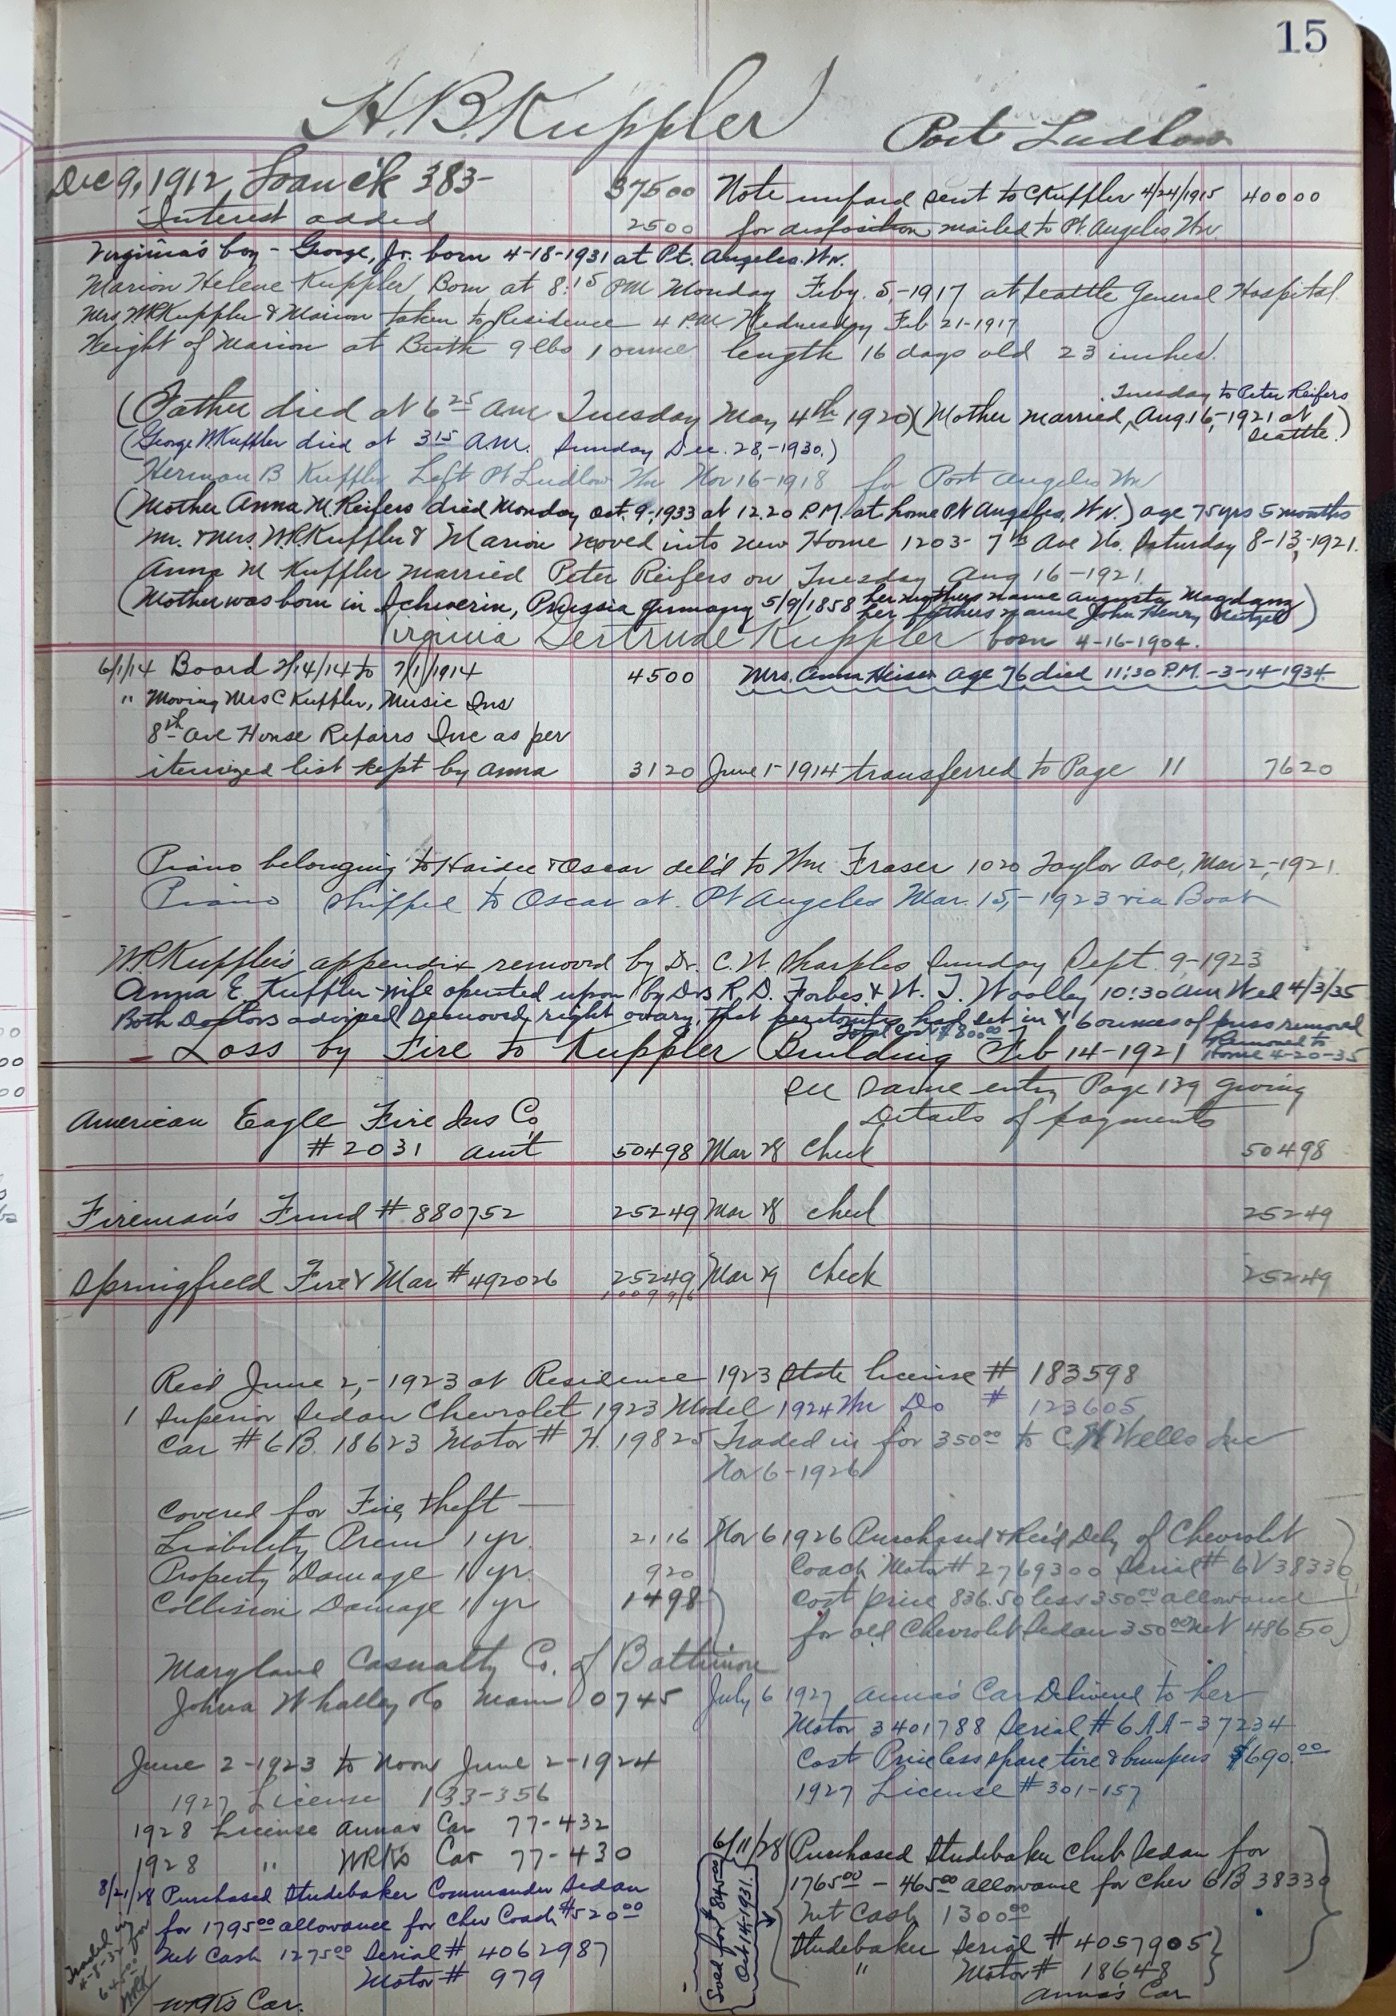 15
H. B. Kuppler Port Ludlow
Dec 9, 1912, Loan ck 383 - 37500 Note unpaid sent to C Kuppler 4/24/1915 40000
Interest added 2500 for disposition mailed to Pt Angeles Wn
Virginia's boy - George, Jr. born 4-18-1931 at Pt. Angeles. Wn.
Marion Helene Kuppler Born at 8:15 PM Monday Feby. 5,-1917 at Seattle General Hospital.
Mrs WRKuppler & Marion taken to Residence 4 P.M. Wednesday Feb 21-1917
Weight of Marion at Birth 9 lbs 1 ounce length 16 days old 23 inches.
Tuesday to Peter Reifers
(Father died at 6 25 am. Tuesday May 4th 1920) (Mother married, Aug 16,-1921 at Seattle.)
(George W. Kuppler died at 3 15 A.M. Sunday Dec. 28,-1930.)
Herman B Kuppler Left Pt Ludlow Wn Nov 16-1918 for Port Angeles Wn
(Mother Anna M. Reifers died Monday Oct. 9,-1933 at 12.20 P.M. at home Pt Angeles, Wn.) age 75 yrs 5 months
Mr. & Mrs. W.R. Kuppler & Marion moved into New Home 1203 - 7th Ave No. Saturday 8-13,-1921.
Anna M Kuppler married Peter Reifers on Tuesday Aug 16-1921
(Mother was born in Schwerin, Prussia Germany 5/9/1858 her mothers name Augusta
her fathers name John Henry)
Virginia Gertrude Kuppler born 4-16-1904.
6/1/14 Board 2/14/14 to 7/1/1914 4500 Mrs. Anna Heiser age 76 died 11:30 P.M. - 3-14-1934.
" Moving Mrs C Kuppler, Music Ins
8th Ave House Repairs Inc as per
itemized list kept by Anna 3120 June 1-1914 transferred to Page 11 7620
Piano belonging to Haidee & Oscar del'd to Wm Fraser 1020 Taylor Ave, Mar 2,-1921.
Piano shipped to Oscar at Pt Angeles Mar. 15,-1923 via Boat
W.R. Kuppler's appendix removed by Dr. C. W. Sharples Sunday Sept. 9,-1923
Anna E. Kuppler - wife operated upon by Drs R. D. Forbes & W. T. Woolley 10:30 am Wed 4/3/35
Both Doctors advised removed right ovary, that peritonitis had set in & 6 ounces of puss removed
Total cost $800.00
Loss by Fire to Kuppler Building Feb 14-1921 Removed to Home 4-20-35
See same entry Page 139 giving
Details of payments
American Eagle Fire Ins Co
#2031 amt 50498 Mar 28 Check 50498
Fireman's Fund #880752 25249 Mar 28 Check 25249
Springfield Fire & Mar #492026 25249 Mar 29 Check 25249
Rec'd June 2,-1923 at Residence 1923 State license # 183598
1 Superior Sedan Chevrolet 1923 Model 1924 Wn Do # 123605
Car #6B. 18623 Motor # H. 19825 Traded in for 350.00 to C.H Wells Inc
Nov 6-1926
Covered for Fire, theft -
Liability Prem 1 yr. 2116 Nov 6 1926 Purchased & Rec'd Dely of Chevrolet
Property Damage 1 yr. 920 Coach Motor # 2769300 Serial # 6V38330
Collision Damage 1 yr 1498 Cost price 836.50 less 350.00 allowance
for old Chevrolet Sedan 350.00 Net 48650
Maryland Casualty Co. of Baltimore
0745 July 6 1927 Anna's Car Delivered to her
Motor 3401788 Serial # 6AA-37234
June 2-1923 to Noon June 2-1924 Cost Price less spare tire & bumpers $690.00
1927 License 133-356 1927 License #301-157
1928 License Anna's Car 77-432
1928 " WRK's Car 77-430 6/11/28 Purchased Studebaker Club Sedan for
8/21/28 Purchased Studebaker Commander Sedan 1765.00 - 465.00 allowance for Chev 6B 38330
for 1795.00 allowance for Chev Coach $520.00 Net Cash 1300.00
Net Cash 1275.00 Serial # 4062987 Studebaker Serial # 4057905
Motor # 979 " Motor # 18648
WRK's Car. Anna's Car
Traded in for
4-8-32
645.00
WRK
Sold for $845.00
Oct 14-1931.